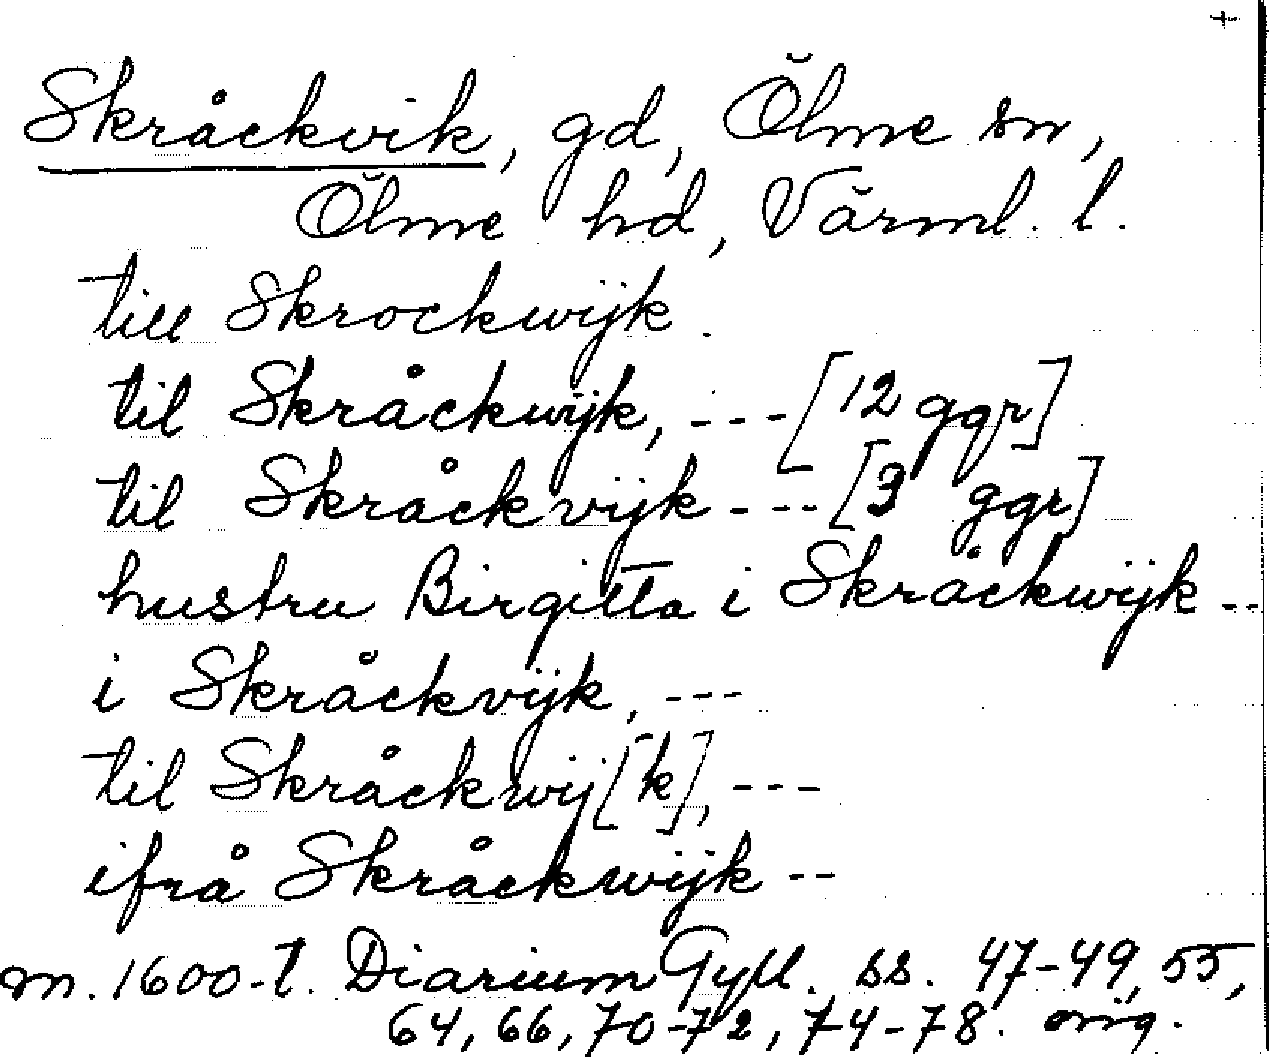 +
Skråckvik, gd, Ölme sn,
Ölme hd, Värml. l.
till Skrockwijk.
til Skråckwijk, --- [12 ggr]
til Skråckvijk --- [3 ggr]
hustru Birgitta i Skråckwijk --
i Skråckvijk, ---
til Skråckwij[k], ---
ifrå Skråckwijk --
m. 1600-t. Diarium Gyll. ss. 47-49, 55,
64, 66, 70-72, 74-78. orig.